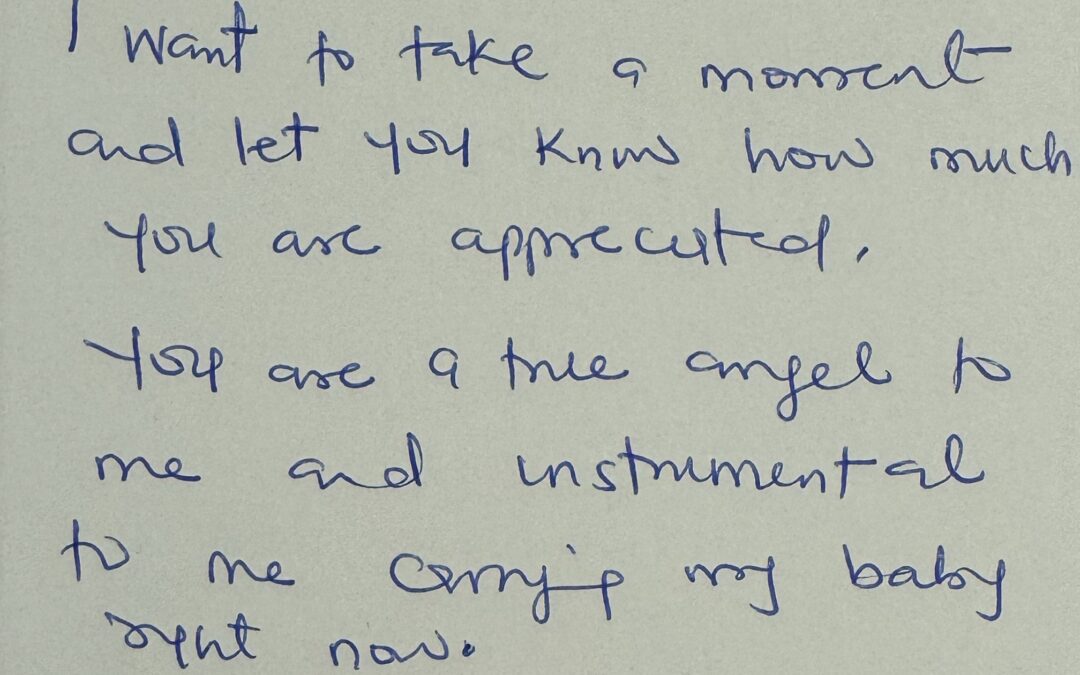 I want to take a moment
and let you know how much
you are appreciated.
You are a true angel to
me and instrumental
to me carrying my baby
right now.